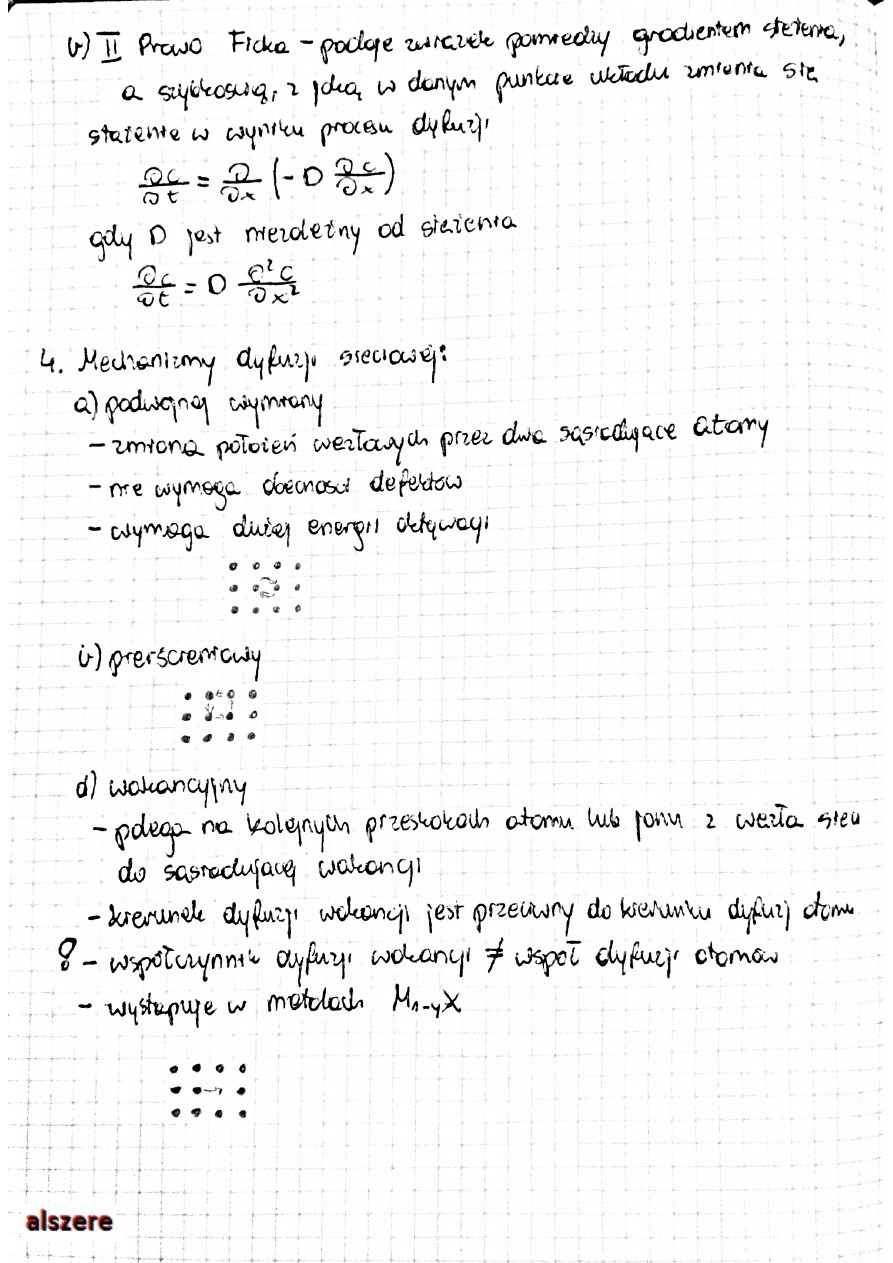 b) II Prawo Ficka - podaje związek pomiędzy gradientem stężenia,
a szybkością, z jaką w danym punkcie układu zmienia się
stężenie w wyniku procesu dyfuzji
∂c/∂t = ∂/∂x (-D ∂c/∂x)
gdy D jest niezależny od stężenia
∂c/∂t = D ∂²c/∂x²
4. Mechanizmy dyfuzji sieciowej:
a) podwójnej wymiany
- zmiana położeń węzłowych przez dwa sąsiadujące atomy
- nie wymaga obecności defektów
- wymaga dużej energii aktywacji
b) pierścieniowy
d) wakancyjny
- polega na kolejnych przeskokach atomu lub jonu z węzła sieci
do sąsiadującej wakancji
- kierunek dyfuzji wakancji jest przeciwny do kierunku dyfuzji atomu
? - współczynnik dyfuzji wakancji ≠ współ dyfuzji atomów
- występuje w metalach M₁₋yX
alszere